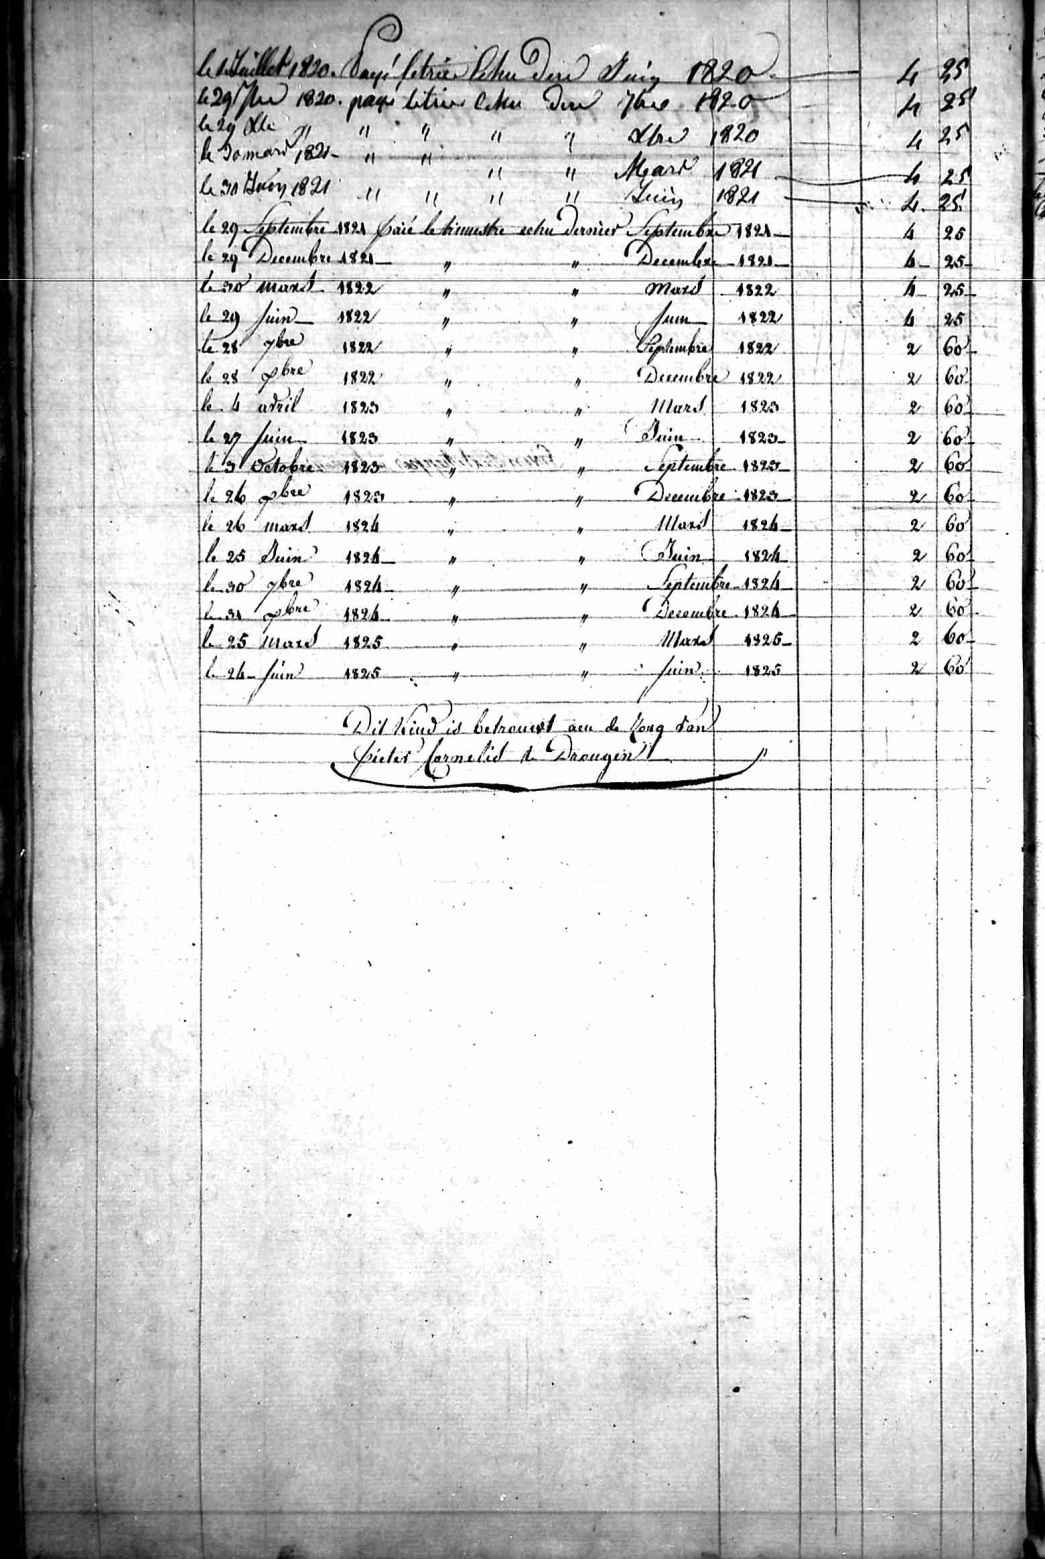 le 1 Juillet 1820. Payé le trie Echu Dere Juin 1820 4 25
le 29 7bre 1820. payé le trie Echu Dere 7bre 1820 4 25
le 29 Xbe " " " " " Xbre 1820 4 25
le 30 mars 1821 " " " " Mars 1821 4 25
le 30 Juin 1821 " " " " Juin 1821 4 25
le 29 Septembre 1821 paié le trimestre echu dernier Septembre 1821 4 25
le 29 Decembre 1821 " " Decembre 1821 4 25
le 30 mars 1822 " " Mars 1822 4 25
le 29 Juin 1822 " " Juin 1822 4 25
le 28 7bre 1822 " " Septembre 1822 2 60
le 28 Xbre 1822 " " Decembre 1822 2 60
le 4 avril 1823 " " Mars 1823 2 60
le 27 Juin 1823 " " Juin 1823 2 60
le 3 Octobre 1823 " " Septembre 1823 2 60
le 26 Xbre 1823 " " Decembre 1823 2 60
le 26 mars 1824 " " Mars 1824 2 60
le 25 Juin 1824 " " Juin 1824 2 60
le 30 7bre 1824 " " Septembre 1824 2 60
le 31 Xbre 1824 " " Decembre 1824 2 60
le 25 Mars 1825 " " Mars 1825 2 60
le 24 Juin 1825 " " Juin 1825 2 60
Dit Kind is betrouwt aen de Zong van
Pieter Cornelis de Drougen